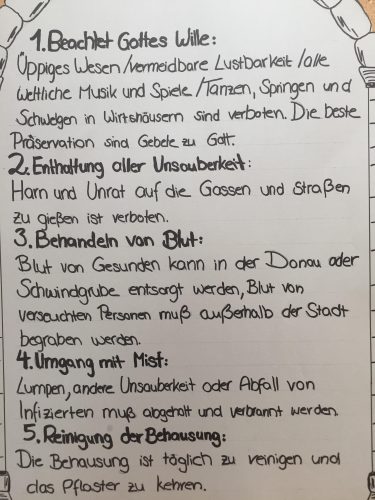 1. Beachtet Gottes Wille:
Üppiges Wesen/vermeidbare Lustbarkeit/alle
weltliche Musik und Spiele/Tanzen, Springen und
Schwelgen in Wirtshäusern sind verboten. Die beste
Präservation sind Gebete zu Gott.
2. Enthaltung aller Unsauberkeit:
Harn und Unrat auf die Gassen und Straßen
zu gießen ist verboten.
3. Behandeln von Blut:
Blut von Gesunden kann in der Donau oder
Schwindgrube entsorgt werden, Blut von
verseuchten Personen muß außerhalb der Stadt
begraben werden.
4. Umgang mit Mist:
Lumpen, andere Unsauberkeit oder Abfall von
Infizierten muß abgeholt und verbrannt werden.
5. Reinigung der Behausung:
Die Behausung ist täglich zu reinigen und
das Pflaster zu kehren.